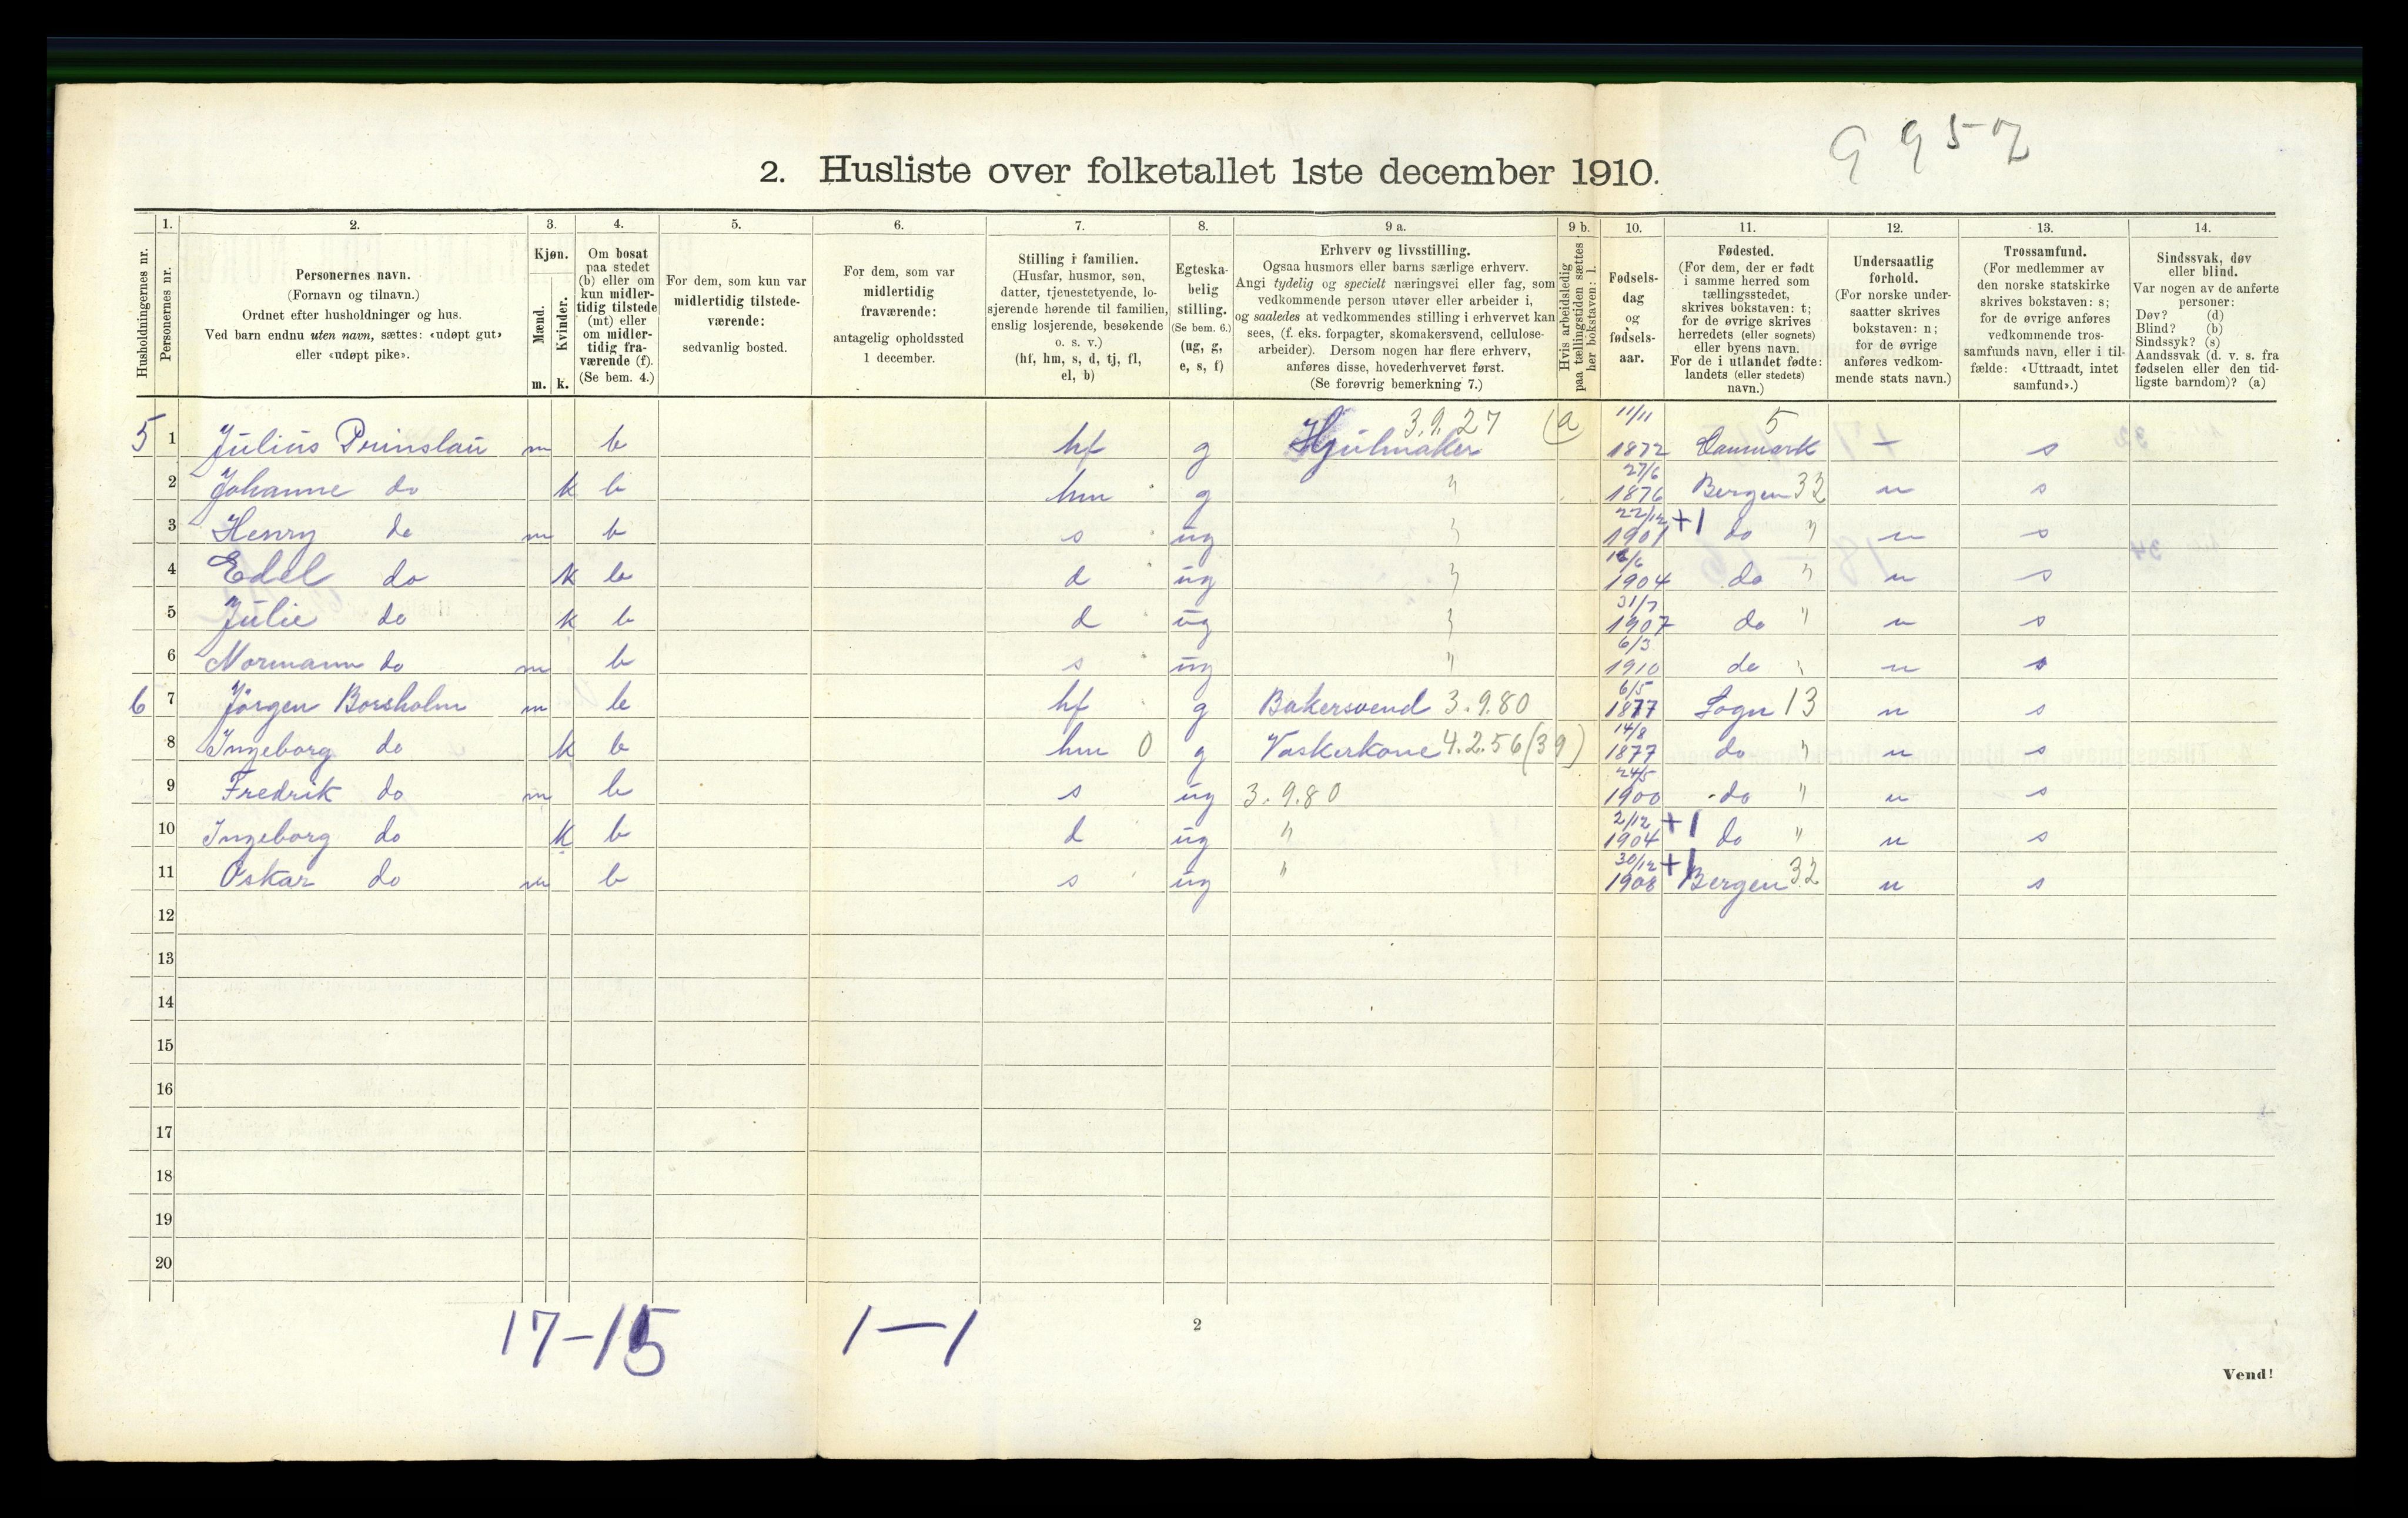 9 9 5-2
2. Husliste over folketallet 1ste december 1910.
Husholdningernes nr.
1. Personernes nr.
2. Personernes navn.
(Fornavn og tilnavn.)
Ordnet efter husholdninger og hus.
Ved barn endnu uten navn, sættes: «udøpt gut»
eller «udøpt pike».
3. Kjøn.
Mænd. m.
Kvinder. k.
4. Om bosat
paa stedet
(b) eller om
kun midler-
tidig tilstede
(mt) eller
om midler-
tidig fra-
værende (f).
(Se bem. 4.)
5. For dem, som kun var
midlertidig tilstede-
værende:
sedvanlig bosted.
6. For dem, som var
midlertidig
fraværende:
antagelig opholdssted
1 december.
7. Stilling i familien.
(Husfar, husmor, søn,
datter, tjenestetyende, lo-
sjerende hørende til familien,
enslig losjerende, besøkende
o. s. v.)
(hf, hm, s, d, tj, fl,
el, b)
8. Egteska-
belig
stilling.
(Se bem. 6.)
(ug, g,
e, s, f)
9 a. Erhverv og livsstilling.
Ogsaa husmors eller barns særlige erhverv.
Angi tydelig og specielt næringsvei eller fag, som
vedkommende person utøver eller arbeider i,
og saaledes at vedkommendes stilling i erhvervet kan
sees, (f. eks. forpagter, skomakersvend, cellulose-
arbeider). Dersom nogen har flere erhverv,
anføres disse, hovederhvervet først.
(Se forøvrig bemerkning 7.)
9 b. Hvis arbeidsledig
paa tællingstiden sættes
her bokstaven: l.
10. Fødsels-
dag
og
fødsels-
aar.
11. Fødested.
(For dem, der er født
i samme herred som
tællingsstedet,
skrives bokstaven: t;
for de øvrige skrives
herredets (eller sognets)
eller byens navn.
For de i utlandet fødte:
landets (eller stedets)
navn.)
12. Undersaatlig
forhold.
(For norske under-
saatter skrives
bokstaven: n;
for de øvrige
anføres vedkom-
mende stats navn.)
13. Trossamfund.
(For medlemmer av
den norske statskirke
skrives bokstaven: s;
for de øvrige anføres
vedkommende tros-
samfunds navn, eller i til-
fælde: «Uttraadt, intet
samfund».)
14. Sindssvak, døv
eller blind.
Var nogen av de anførte
personer:
Døv? (d)
Blind? (b)
Sindssyk? (s)
Aandssvak (d. v. s. fra
fødselen eller den tid-
ligste barndom)? (a)
5 1 Julius Prinslau m b hf g Hjulmaker 3.9.27 (a 11/11 1872 Danmark 5 + s
2 Johanne do k b hm g " 27/6 1876 Bergen 32 n s
3 Henry do m b s ug " 22/12 1901 +1 do " n s
4 Edel do k b d ug " /6 1904 do " n s
5 Julie do k b d ug " 31/7 1907 do " n s
6 Normann do m b s ug " 6/3 1910 do " n s
6 7 Jörgen Borsholm m b hf g Bakersvend 3.9.80 6/5 1877 Sogn 13 n s
8 Ingeborg do k b hm 0 g Vaskerkone 4.2.56 (39) 14/8 1877 do " n s
9 Fredrik do m b s ug 3.9.80 24/5 1900 do " n s
10 Ingeborg do k b d ug " 2/12 1904 +1 do " n s
11 Oskar do m b s ug " 30/12 1908 +1 Bergen 32 n s
12
13
14
15
16
17
18
19
20
17-15 1-1
2
Vend!